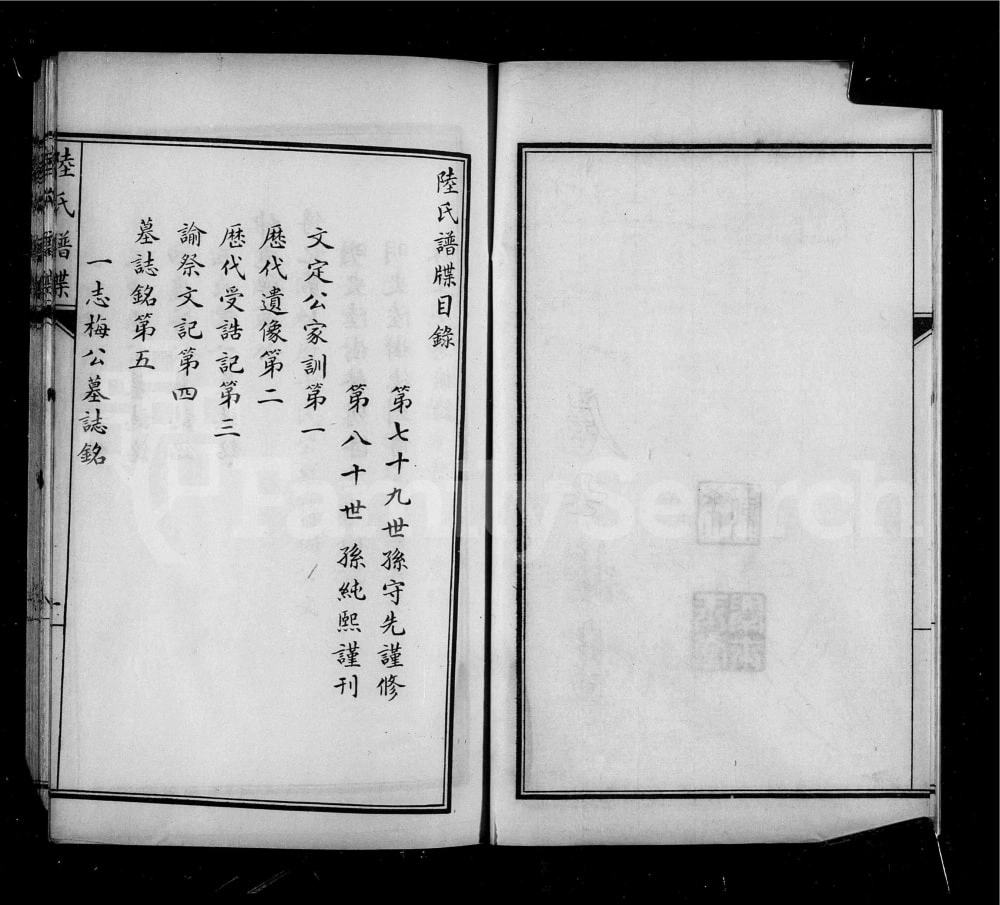 陸氏譜牒目錄
第七十九世孫守先謹修
第八十世孫純熙謹刊
文定公家訓第一
歷代遺像第二
歷代受誥記第三
諭祭文記第四
墓誌銘第五
一志梅公墓誌銘
陸氏譜牒
一
FamilySearch